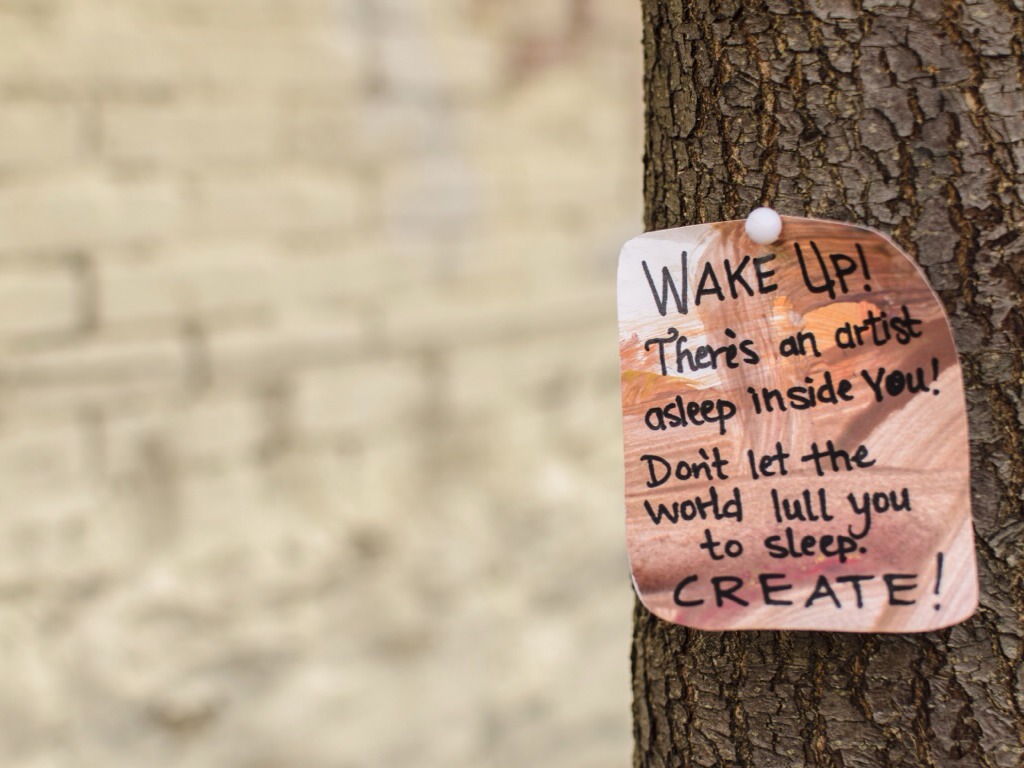 WAKE UP!
There's an artist
asleep inside You!
Don't let the
world lull you
to sleep.
CREATE!